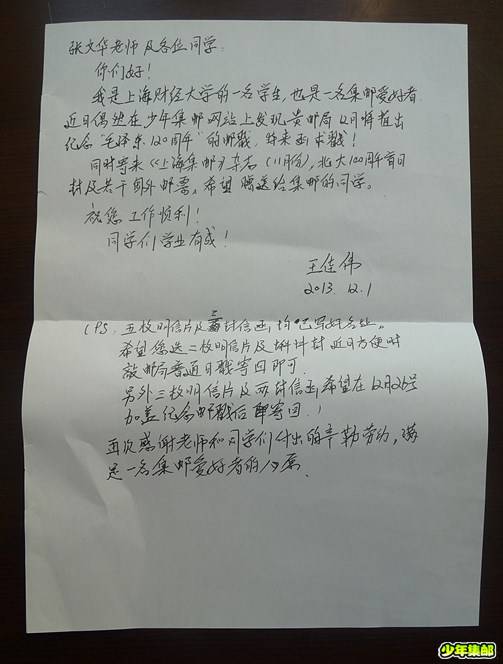 张文华老师及各位同学:
你们好!
我是上海财经大学的一名学生,也是一名集邮爱好者
近日偶然在少年集邮网站上发现贵邮局12月将推出
纪念“毛泽东120周年”的邮戳,特来函求戳!
同时寄来《上海集邮》杂志(11月份),北大100周年首日
封及若干国外邮票。希望赠送给集邮的同学。
祝您工作顺利!
同学们学业有成!
王佳伟
2013.12.1
(PS.五枚明信片及三封信函,均已写好名址。
希望您选二枚明信片及封近日方便时
敲邮局普通日戳寄回即可.
另外三枚明信片及两封信函,希望在12月26号
加盖纪念邮戳后寄回.)
再次感谢老师和同学们付出的辛勤劳动,满
是一名集邮爱好者的
少年集邮